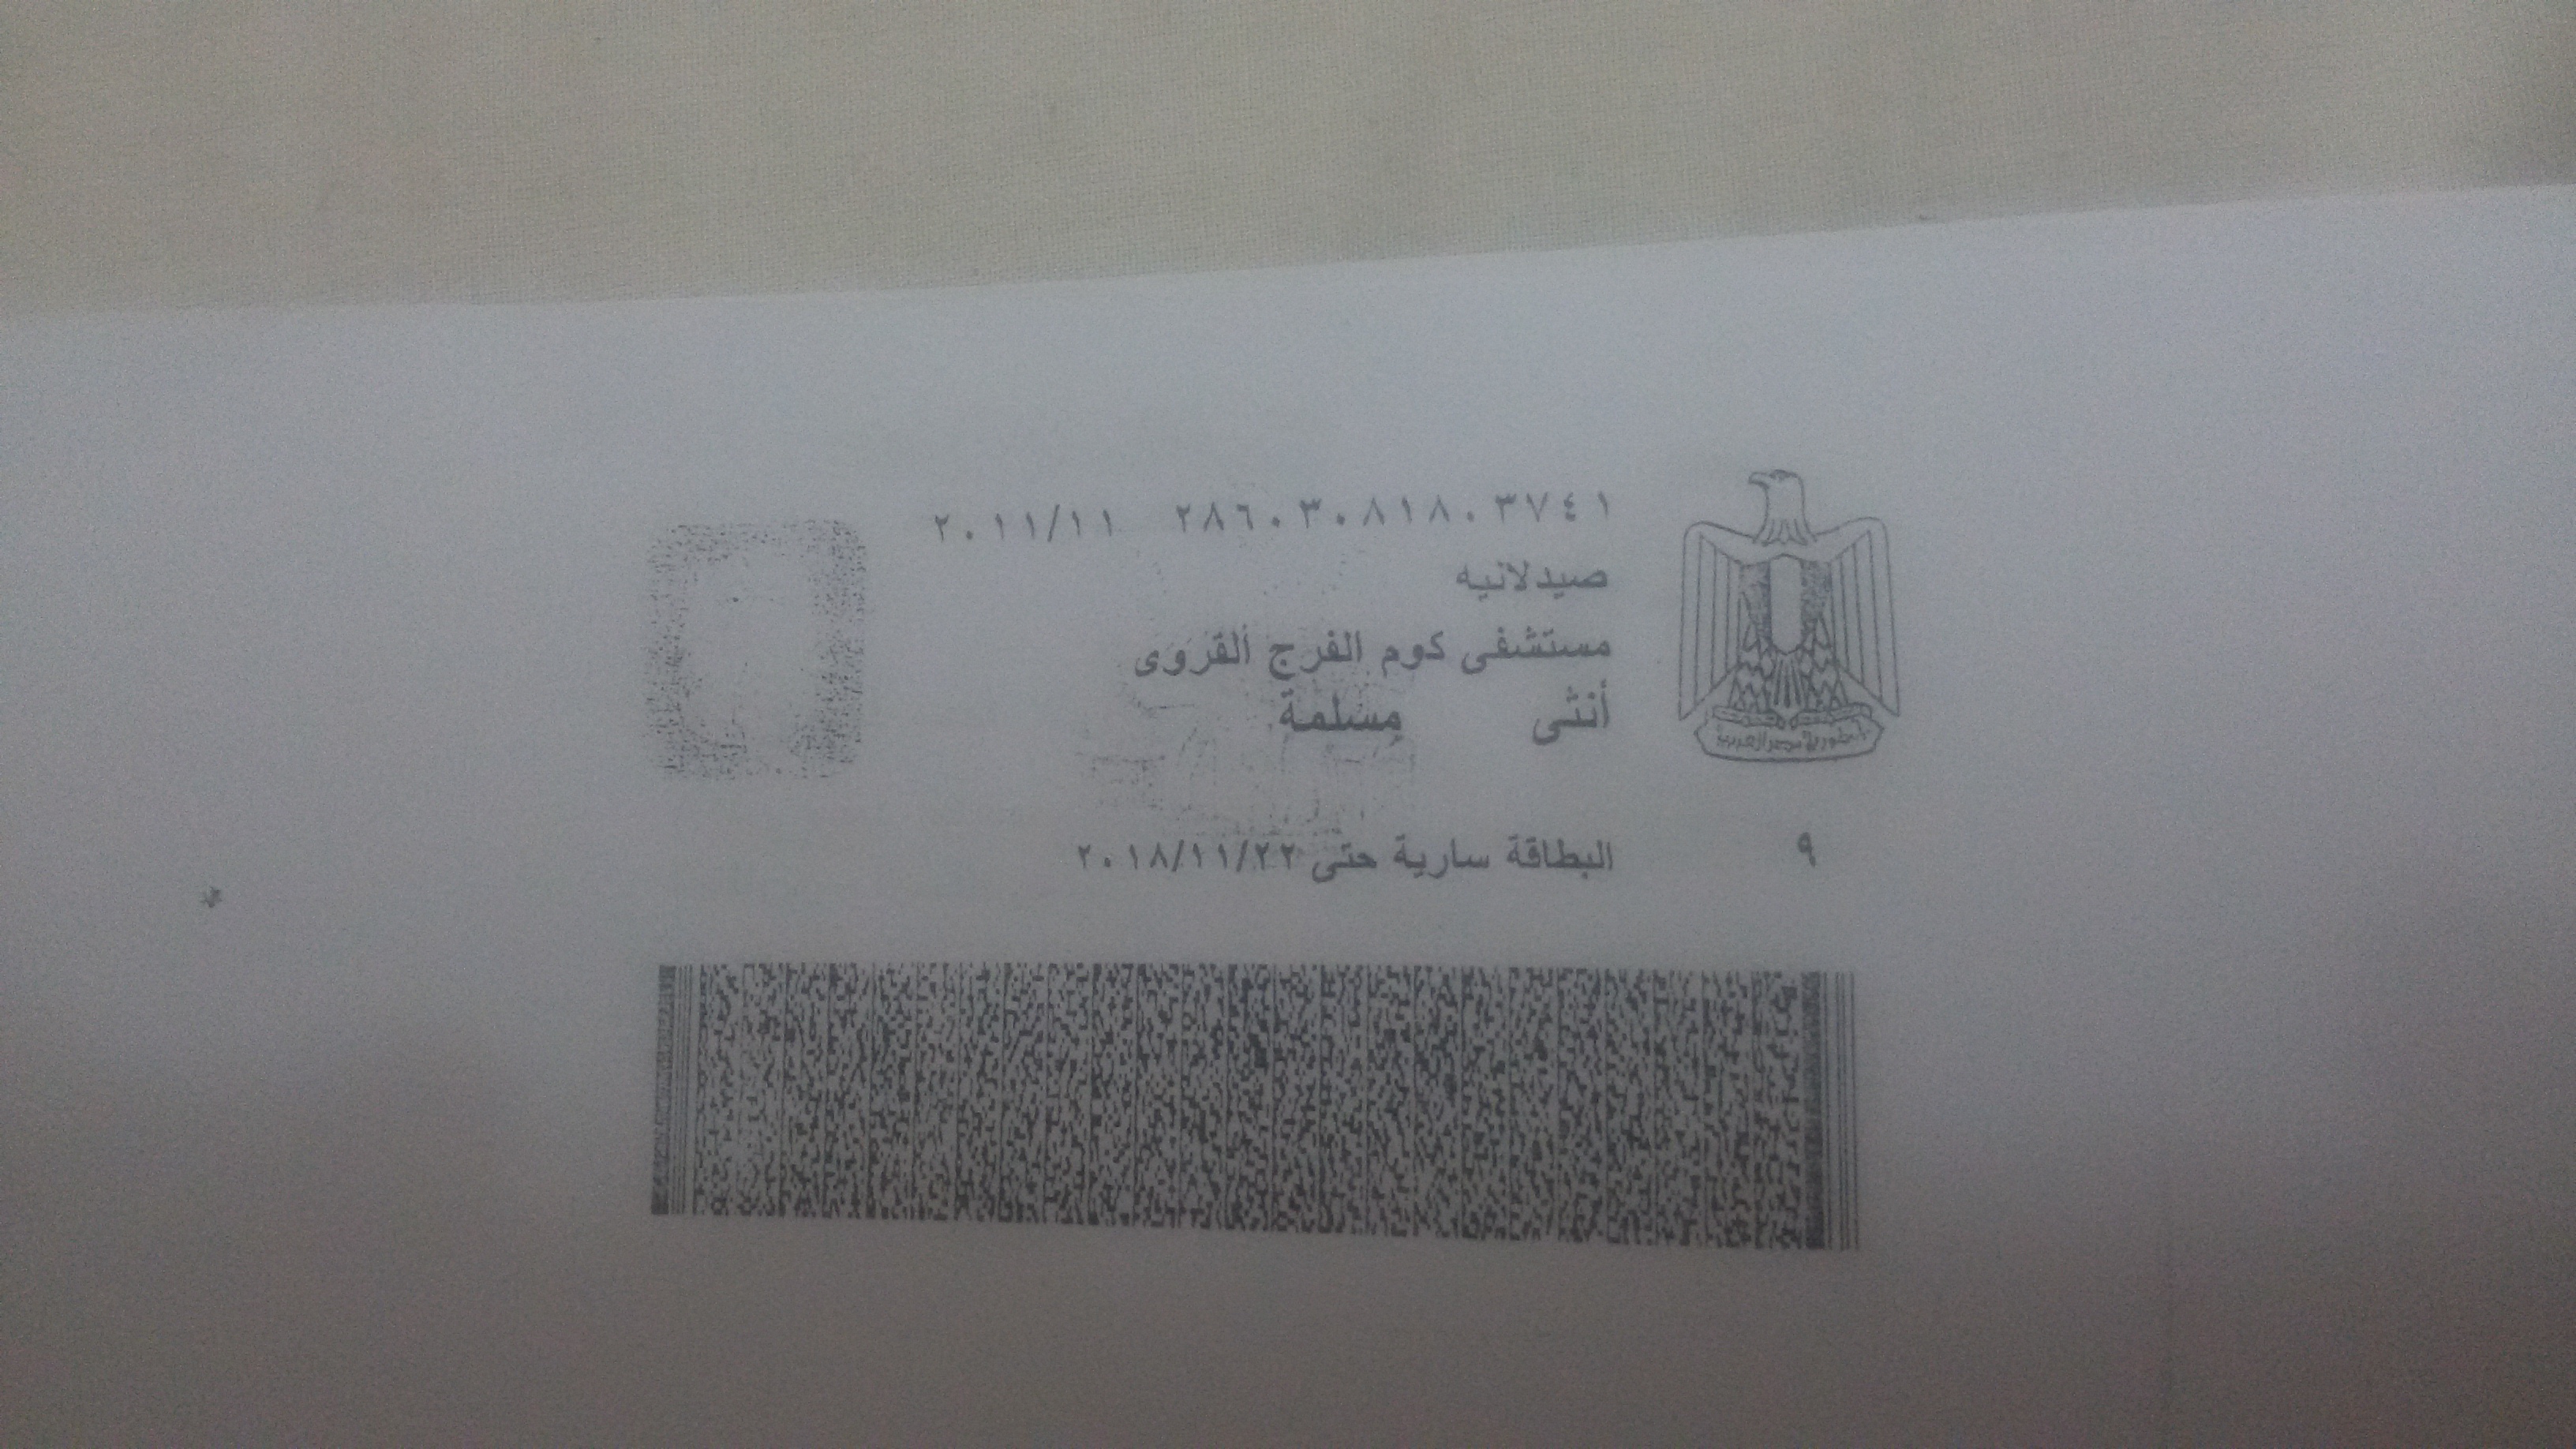 ٢٨٦٠٣٠٨١٨٠٣٧٤١ ٢٠١١/١١
صيدلانيه
مستشفى كوم الفرج القروى
أنثى مسلمة
جمهورية مصر العربية
٩ البطاقة سارية حتى ٢٠١٨/١١/٢٢